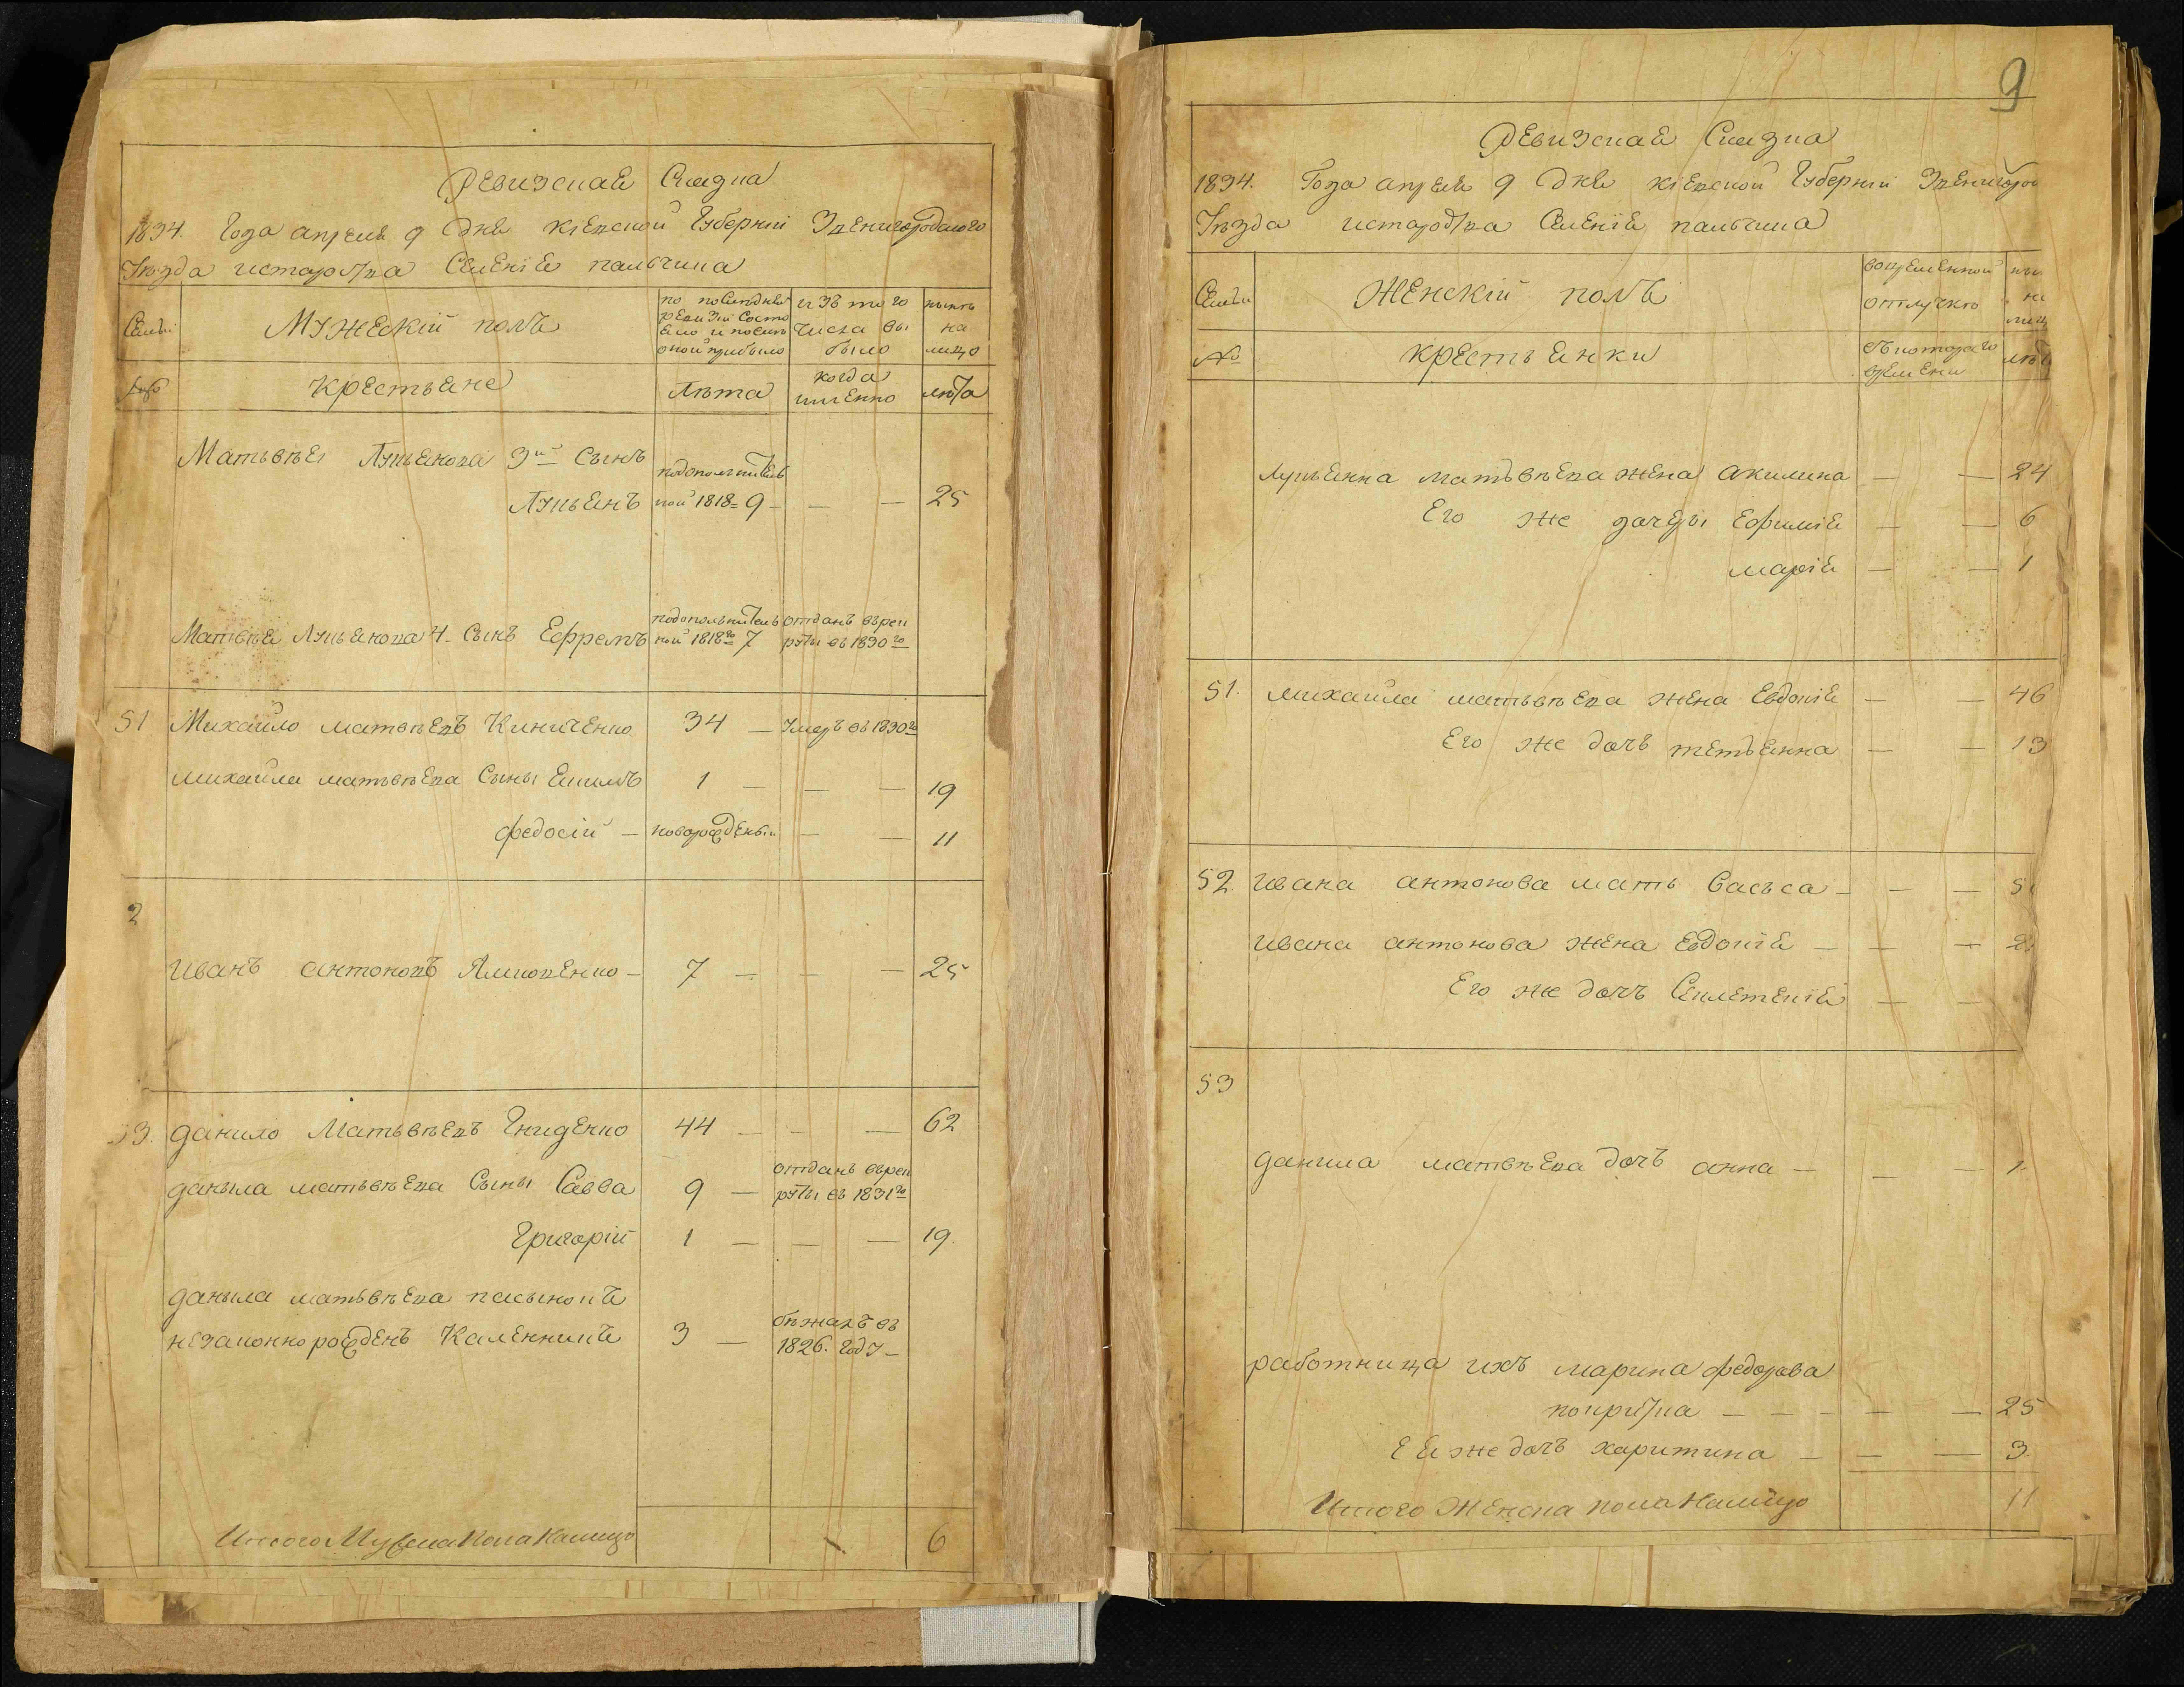 Ревизская Сказка
1834. Года апреля 9 дня Кіевской Губерніи Звенигородского
Уезда и староства Селеніе пальчика
Семьи
Мужескій полъ
по последней ревизіи состояло и после оной прибыло
изъ того числа выбыло
ныне на лицо
№
крестьяне
Лета
когда именно
лета
Матьвеея Лукьянова 3й Сынъ
Лукьянъ
по дополнительной 1818 = 9 — — — 25
Матвея Лукьянова 4 Сынъ Ефремъ
по дополнительной 1818го 7
отданъ врекруты въ 1830го
51 Михайло матвеевъ Киниченко 34 — Умеръ въ 1830го
михайла матьвеева Сыны Якимъ 1 — — — 19
федосій — новорожденый — — 11
2
иванъ антоновъ Яковенко — 7 — — — 25
53. данило Матьвеевъ Гниденко 44 — — — 62
данила матьвеева Сыны Савва 9 — отданъ врекруты въ 1831го
Григорій 1 — — — 19.
данила матьвеева пасынокъ
незаконно рожденъ Каленникъ 3 — бежалъ въ 1826. году —
Итого Мужеска Пола налицо 6
9
Ревизская Сказка
1834. Года апреля 9 дня кіевской Губерніи Звенигоро
Уезда и староства Селеніе пальчика
Семьи
Женскій полъ
во временной отлучке
№
крестьянки
съ котораго времени
Лукьянна матьвеева жена акилина — — 24
Его же дочеры Ефимія — — 6
марія — — 1
51. михайла матьвеева жена Евдокія — — 46
Его же дочъ тетьянна — — 13
52. ивана антонова мать Васъса — — —
ивана антонова жена Евдокія — — —
Его же дочъ — —
53
данила матвеева дочъ анна — — —
работница ихъ марина федорова
— — — — — 25
Ея же дочъ харитина — — — 3
Итого Женска пола налицо 11